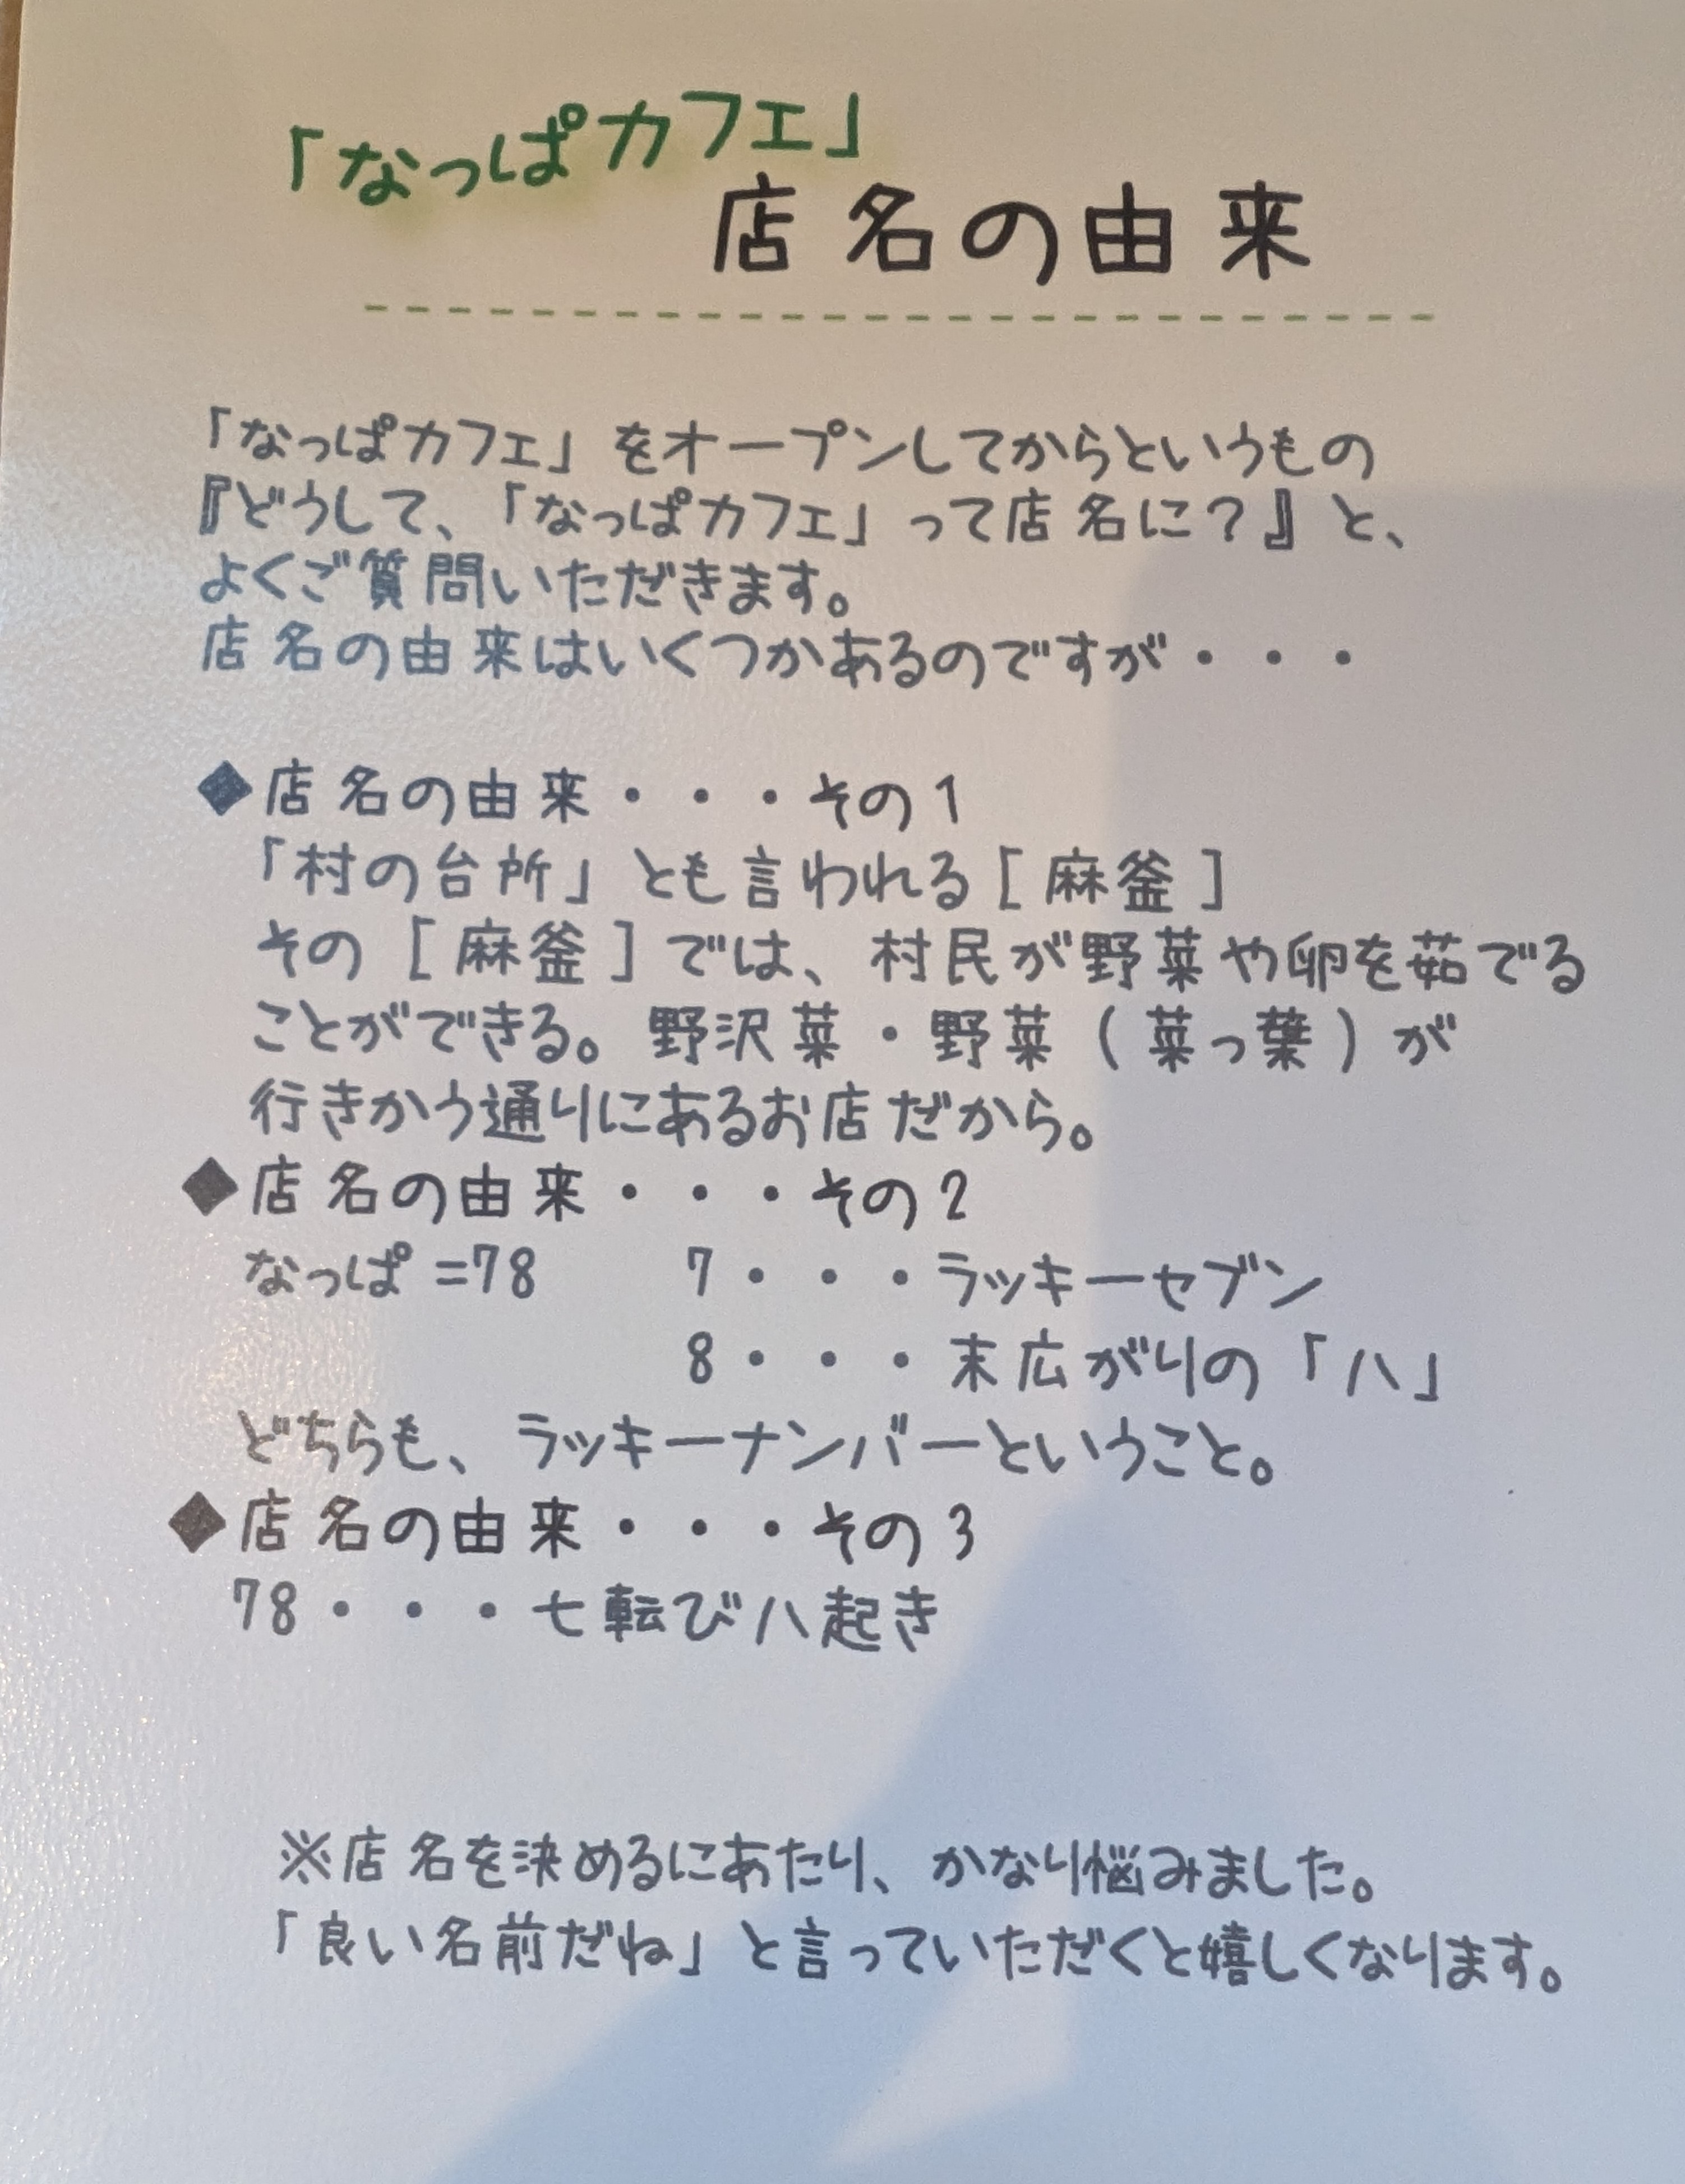 「なっぱカフェ」
店名の由来
「なっぱカフェ」をオープンしてからというもの
『どうして、「なっぱカフェ」って店名に？』と、
よくご質問いただきます。
店名の由来はいくつかあるのですが・・・
◆店名の由来・・・その1
「村の台所」とも言われる［麻釜］
その［麻釜］では、村民が野菜や卵を茹でる
ことができる。野沢菜・野菜（菜っ葉）が
行きかう通りにあるお店だから。
◆店名の由来・・・その2
なっぱ=78　7・・・ラッキーセブン
8・・・末広がりの「八」
どちらも、ラッキーナンバーということ。
◆店名の由来・・・その3
78・・・七転び八起き
※店名を決めるにあたり、かなり悩みました。
「良い名前だね」と言っていただくと嬉しくなります。